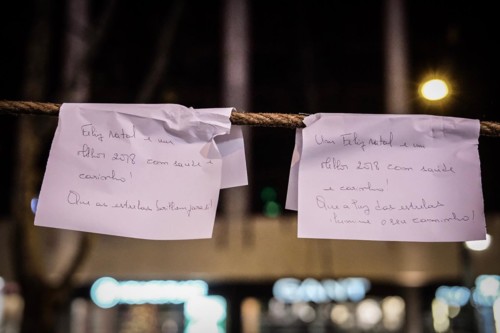 Feliz natal e um
Melhor 2018 com saúde e
carinho!
Que as estrelas
Um Feliz natal e um
Melhor 2018 com saúde
e carinho!
Que a luz das estrelas
ilumine o seu caminho!